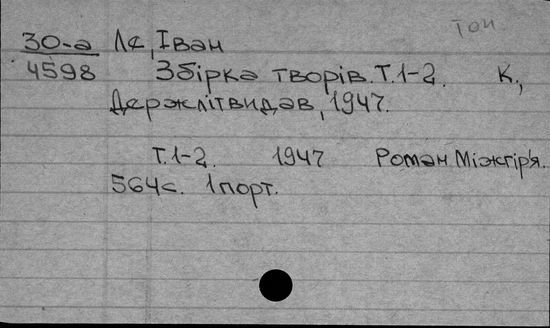 30-а Ле, Іван
4598 Збірка творів. Т.1-2. К.,
Держлітвидав, 1947.
Т.1-2. 1947 Роман Міжгір'я.
564с. 1 порт.